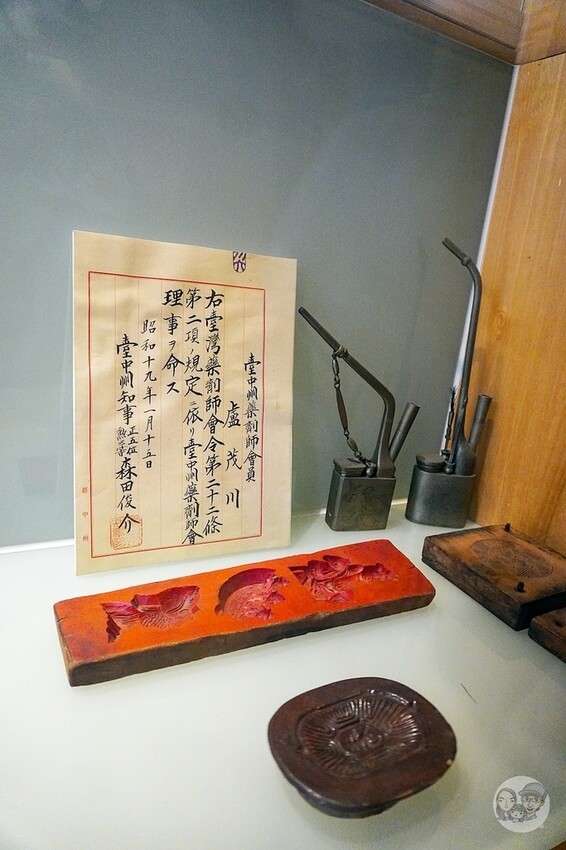 臺中州藥劑師會員
盧茂川
右臺灣藥劑師會令第二十二條
第二項ノ規定ニ依リ臺中州藥劑師會
理事ヲ命ス
昭和十九年一月十五日
臺中州知事正五位勲四等森田俊介
臺中州